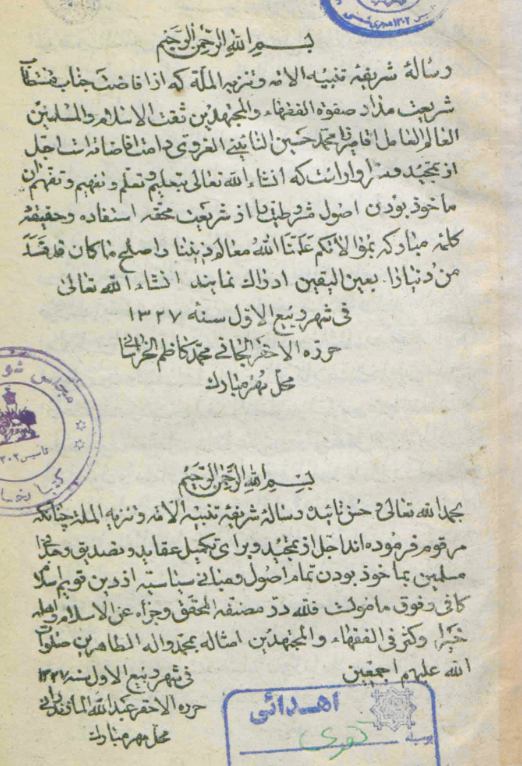 بسم الله الرحمن الرحیم
رسالهٔ شریفهٔ تنبیه الامه و تنزیه المله که از افاضات جناب مستطاب
شریعت مدار صفوة الفقهاء والمجتهدین ثقت الاسلام والمسلمین
العالم العامل آقا میرزا محمد حسین النائینی الغروی دامت افاضاته است اجل
از تمجید و سزاوار است که انشاء الله تعالی بتعلیم و تعلم و تفهیم و تفهم آن
ماخوذ بودن اصول مشروطیت را از شریعت محقه استفاده و حقیقت
کلمهٔ مبارکه بموالاتکم علمنا الله معالم دیننا واصلح ما کان قد فسد
من دنیانا را بعین الیقین ادراک نمایند انشاء الله تعالی
فی شهر ربیع الاول سنه ۱۳۲۷
حرره الاحقر الجانی محمد کاظم الخراسانی
محل مهر مبارک
مجلس شو
تاسیس ۱۳۰۲
بسم الله الرحمن الرحیم
بحمد الله تعالی و حسن تائیده رسالهٔ شریفهٔ تنبیه الامه و تنزیه المله چنانکه
مرقوم فرموده‌اند اجل از تمجید و برای تکمیل عقاید و تصدیق وجدانی
مسلمین بماخوذ بودن تمام اصول و مبانی سیاسیه از دین قویم اسلام
کافی و فوق مامولست فلله در مصنفه المحقق وجزاه عن الاسلام واهله
خیرا وکثر فی الفقهاء والمجتهدین امثاله بمحمد واله الطاهرین صلوات
الله علیهم اجمعین
فی شهر ربیع الاول سنه ۱۳۲۷
حرره الاحقر عبدالله المازندرانی
محل مهر مبارک
اهدائی